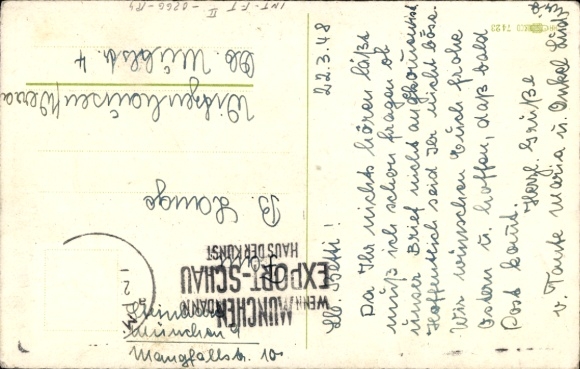 22.3.48
Lb. Betti!
Da Ihr nichts hören läßt
muß ich schon fragen ob
unser Brief nicht angekommen ist
Hoffentlich seid Ihr nicht böse.
Wir wünschen Euch frohe
Ostern u. hoffen, daß bald
Post kommt.
Herzl. Grüße
v. Tante Maria u. Onkel
B. Lange
Witzenhausen/Werra
Ob. Mühlstr. 4
WENN MÜNCHEN
DANN
EXPORT-SCHAU
HAUS DER KUNST
München 9
Mangfallstr. 10
INT-FT II - 0266-154
7423